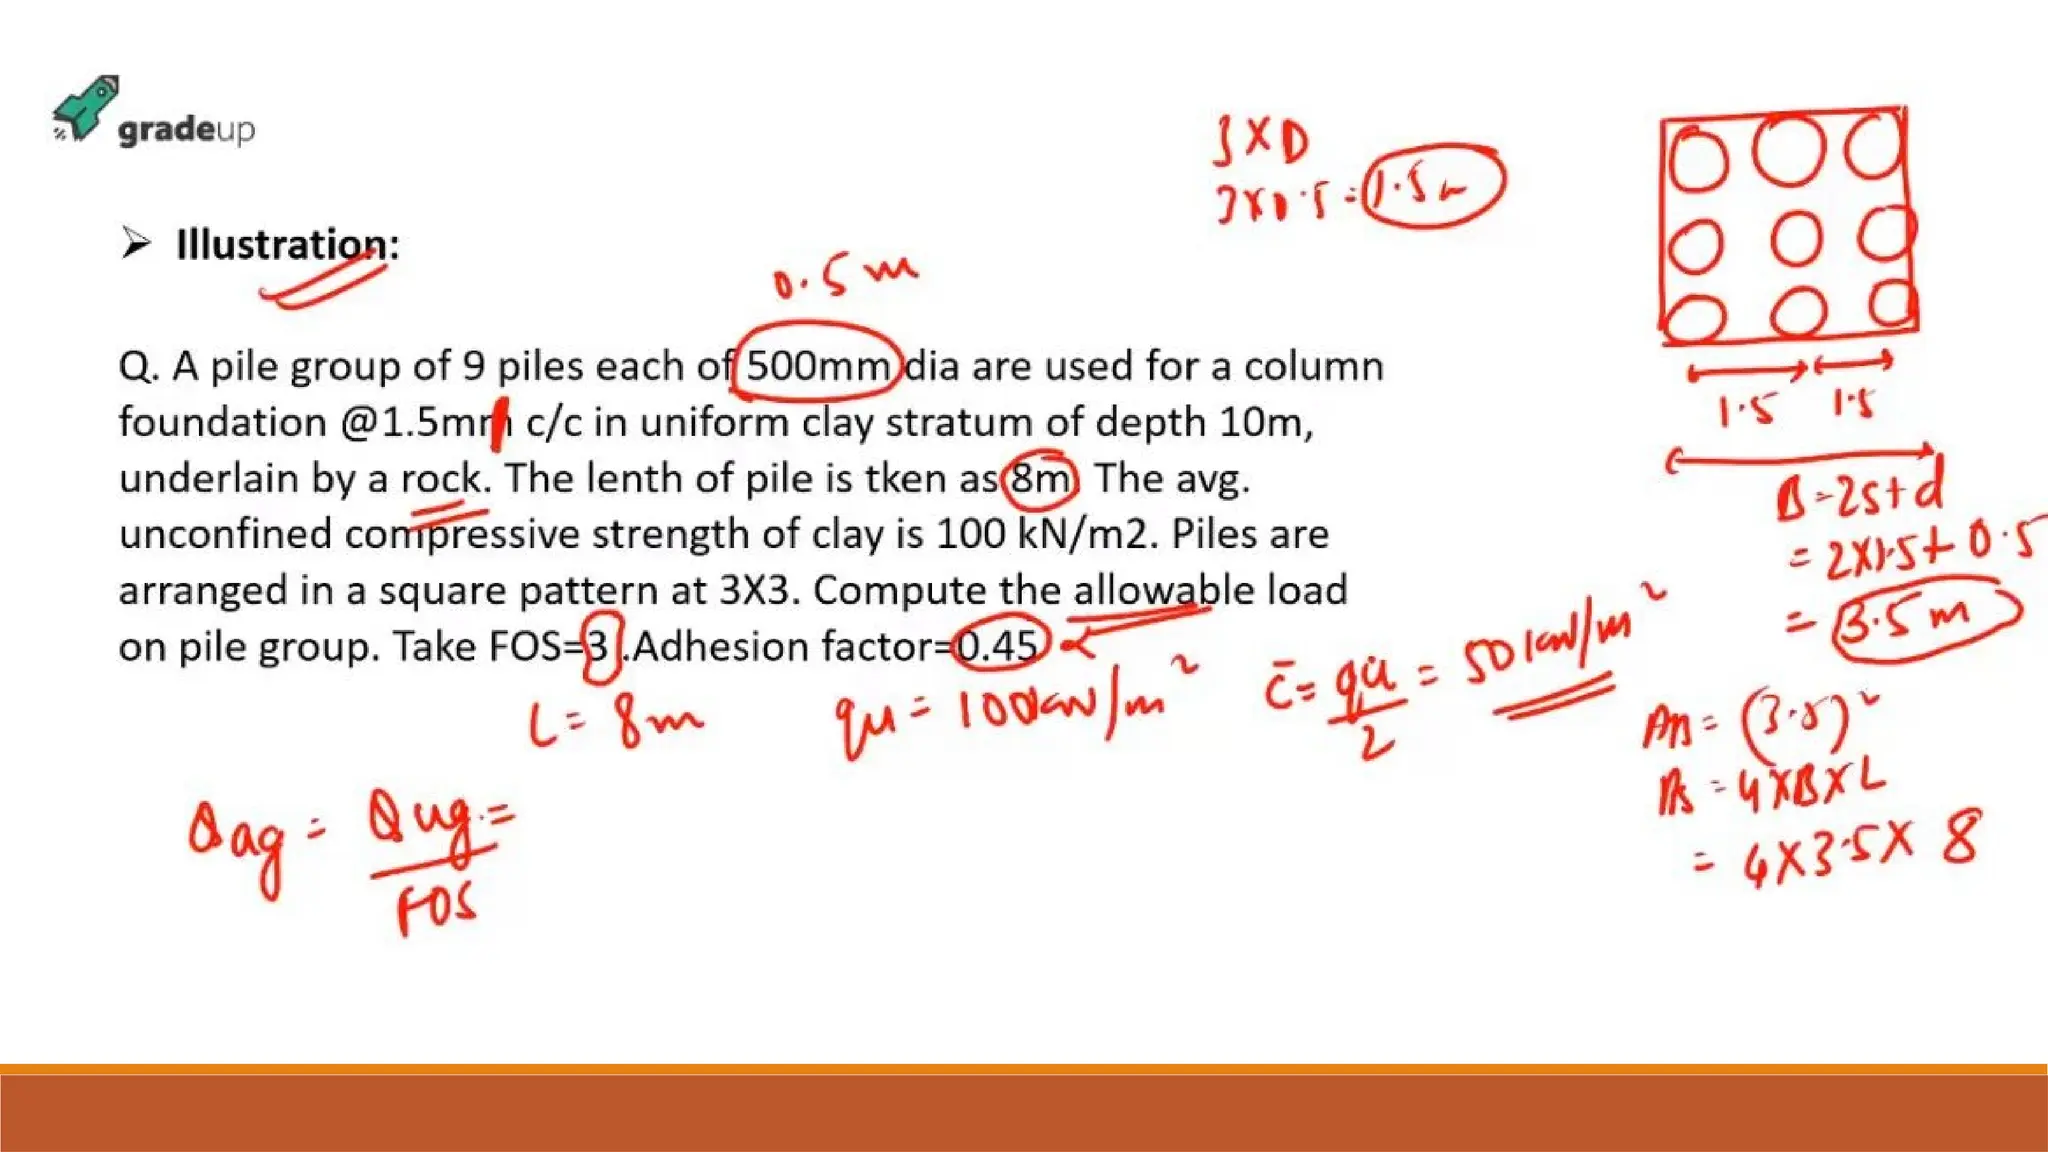 gradeup
➢ Illustration:
3XD
3X0.5 = 1.5m
0.5m
Q. A pile group of 9 piles each of 500mm dia are used for a column
foundation @1.5mm c/c in uniform clay stratum of depth 10m,
underlain by a rock. The lenth of pile is tken as 8m. The avg.
unconfined compressive strength of clay is 100 kN/m2. Piles are
arranged in a square pattern at 3X3. Compute the allowable load
on pile group. Take FOS=3 .Adhesion factor=0.45
1.5 1.5
B = 2s+d
= 2X1.5+0.5
= 3.5m
L = 8m
qu = 100kN/m²
c̄ = qu/2 = 50kN/m²
AB = (3.5)²
As = 4XBXL
= 4X3.5X8
Qag = Qug =
FOS